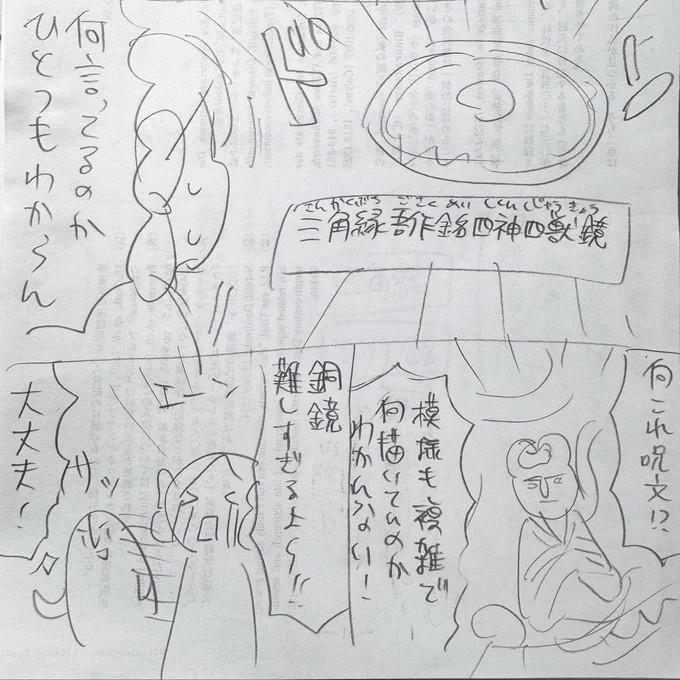 ドドン
さんかくぶち ごさく めい ししんしじゅうきょう
三角縁吾作銘四神四獣鏡
何言ってるのか
ひとつもわからん
何これ呪文!?
模様も複雑で
何描いてんのか
わかんない!
銅鏡
難しすぎるよ〜!!
エーン
サッ
大丈夫!